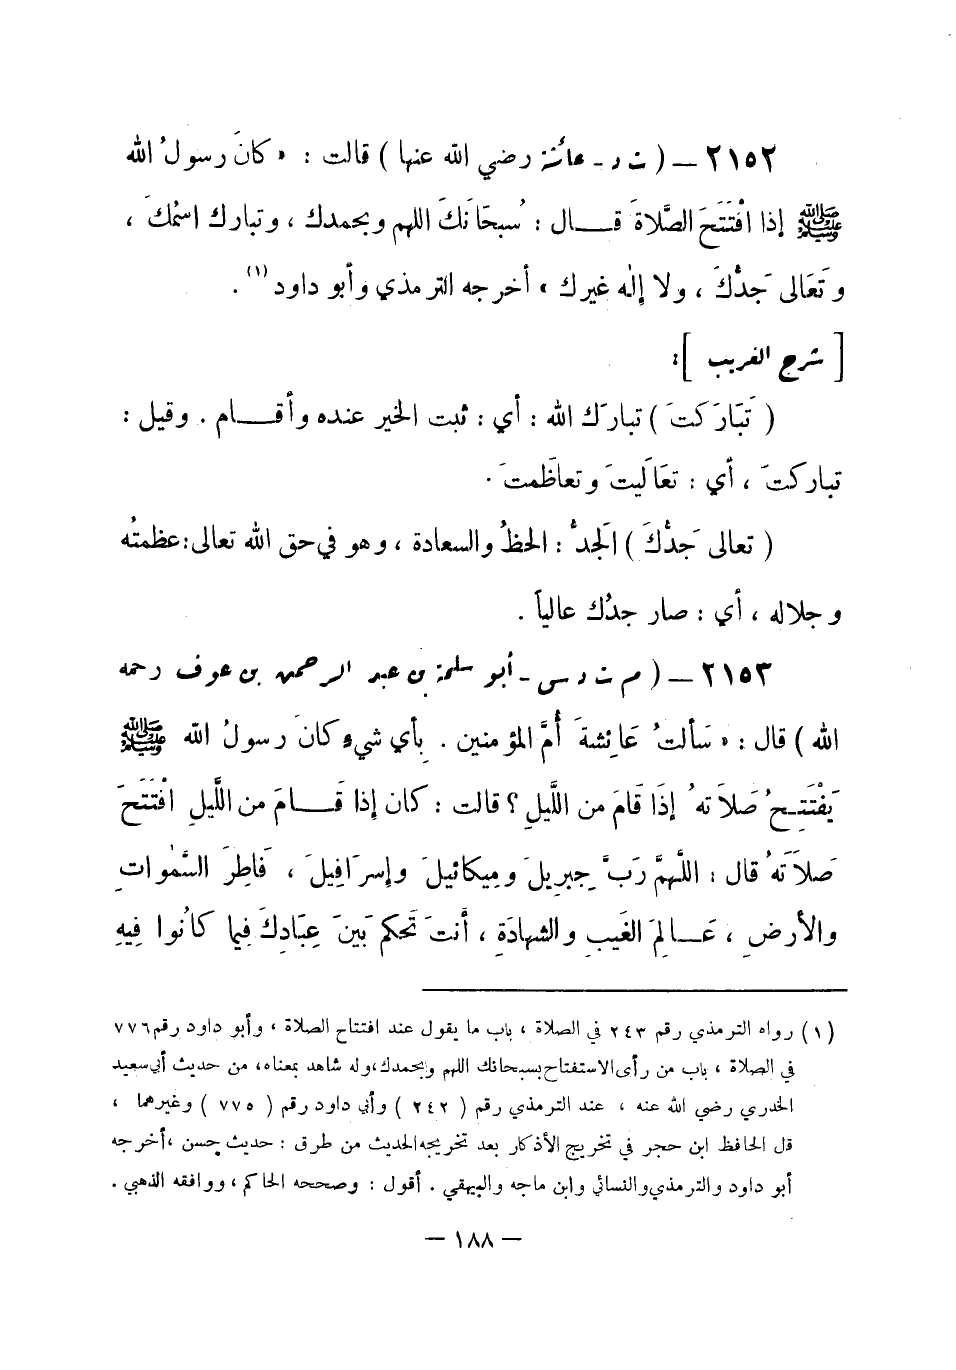 ٢١٥٢ – ( ت د - عائشة رضي الله عنها ) قالت : « كانَ رسولُ الله
ﷺ إذا افْتَتَحَ الصَّلاةَ قـــال : سُبحَانَكَ اللهم وبحمدك ، وتبارك اسْمُكَ ،
وتَعَالى جَدُّكَ ، ولا إلٰه غيرك » أخرجه الترمذي وأبو داود (١) .
[ شرح الغريب ]:
( تَبَارَكتَ ) تبارَك الله : أي : ثبت الخير عنده وأقـــام . وقيل :
تباركتَ ، أي : تعَاليتَ وتعاظَمتَ .
( تعالى جَدُّكَ ) الجَدُّ : الحظُ والسعادة ، وهو في حق الله تعالى: عظمتُه
وجلاله ، أي : صار جدُك عالياً .
٢١٥٣ – ( م ت د س - أبو سلمة بن عبد الرحمن بن عوف رحمه
الله ) قال : « سَألتُ عَائِشةَ أُمَّ المؤمنين . بِأي شيءٍ كانَ رسولُ الله ﷺ
يَفْتَتِـحُ صَلاَتهُ إذَا قَامَ من اللَّيلِ ؟ قالت : كان إذا قَـــامَ من اللَّيلِ افْتَتَحَ
صَلاَتَهُ قال : اللَّهمَّ رَبَّ جِبريلَ ومِيكائيلَ وإسرَافِيلَ ، فَاطِرَ السَّمٰواتِ
والأرضِ ، عَـــالِمَ الغَيبِ والشهادَةِ ، أنتَ تَحكم بَينَ عِبَادِكَ فِيما كانُوا فِيهِ
(١) رواه الترمذي رقم ٢٤٣ في الصلاة ، باب ما يقول عند افتتاح الصلاة ، وأبو داود رقم ٧٧٦
في الصلاة ، باب من رأى الاستفتاح بسبحانك اللهم وبحمدك، وله شاهد بمعناه، من حديث أبي سعيد
الخدري رضي الله عنه ، عند الترمذي رقم ( ٢٤٢ ) وأبي داود رقم ( ٧٧٥ ) وغيرهما ،
قل الحافظ ابن حجر في تخريج الأذكار بعد تخريجه الحديث من طرق : حديث حسن ، أخرجه
أبو داود والترمذي والنسائي وابن ماجه والبيهقي . أقول : وصححه الحاكم ، ووافقه الذهبي .
– ١٨٨ –